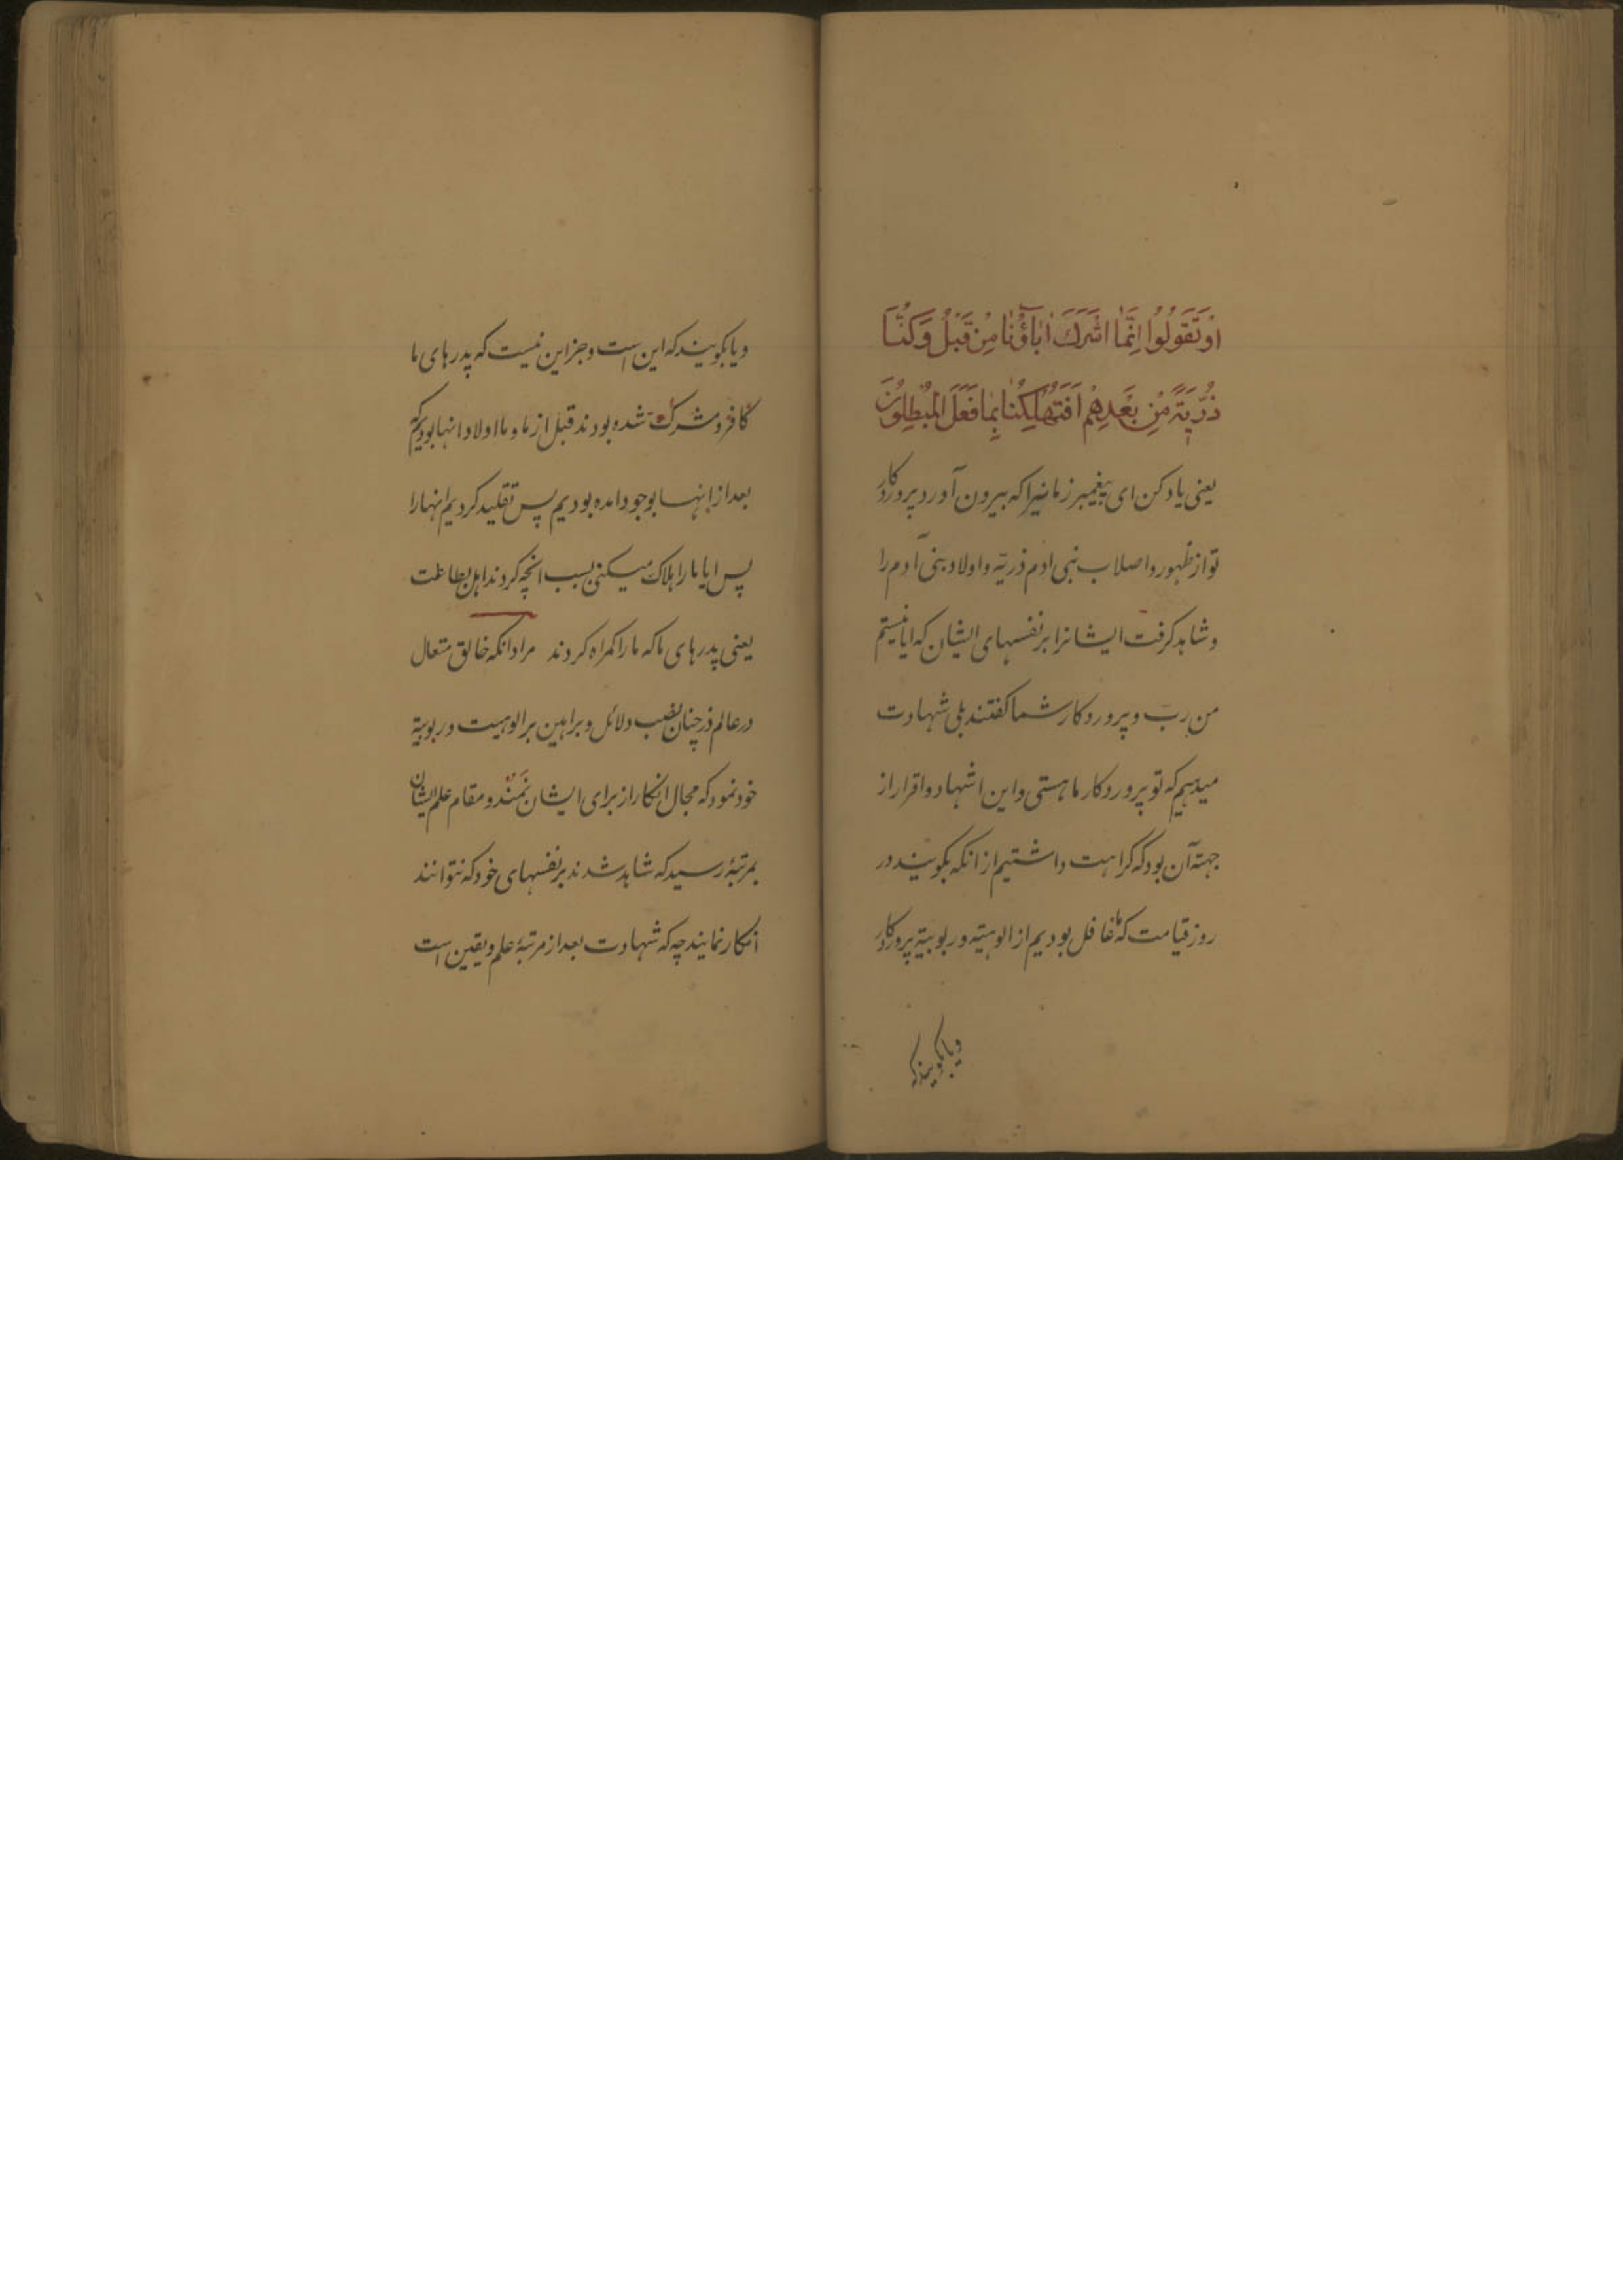 اَوْ تَقُولُوا اِنَّمٰا اَشْرَكَ اٰبٰآؤُنٰا مِنْ قَبْلُ وَ كُنّٰا
ذُرِّيَّةً مِنْ بَعْدِهِمْ اَفَتُهْلِكُنٰا بِمٰا فَعَلَ الْمُبْطِلُونَ
یعنی یاد کن ای پیغمبر زمانیرا که بیرون آورد پروردکار
تو از ظهور و اصلاب بنی ادم ذریّه و اولاد بنی آدم را
و شاهد کرفت ایشانرا بر نفسهای ایشان که ایا نیستم
من ربّ و پروردکار شما کفتند بلی شهادت
میدهیم که تو پروردکار ما هستی و این اشهاد و اقرار از
جهته آن بود که کراهت داشتیم از انکه بکویند در
روز قیامت که ما غافل بودیم از الوهیته و ربوبیته پروردکار
و یا بکویند که
و یا بکویند که این است و جز این نیست که پدرهای ما
کافر و مشرک شده بودند قبل از ما و ما اولاد انها بودیم که
بعد از انها بوجود امده بودیم پس تقلید کردیم انها را
پس ایا ما را هلاک میکنی بسبب انچه کردند اهل بطالت
یعنی پدرهای ما که ما را کمراه کردند مراد انکه خالق متعال
در عالم ذر چنان نصب دلائل و براهین بر الوهیت و ربوبیة
خود نمود که مجال انکار از برای ایشان نمٰند و مقام علم ایشان
بمرتبهٔ رسید که شاهد شدند بر نفسهای خود که نتوانند
انکار نمایند چه که شهادت بعد از مرتبهٔ علم و یقین است